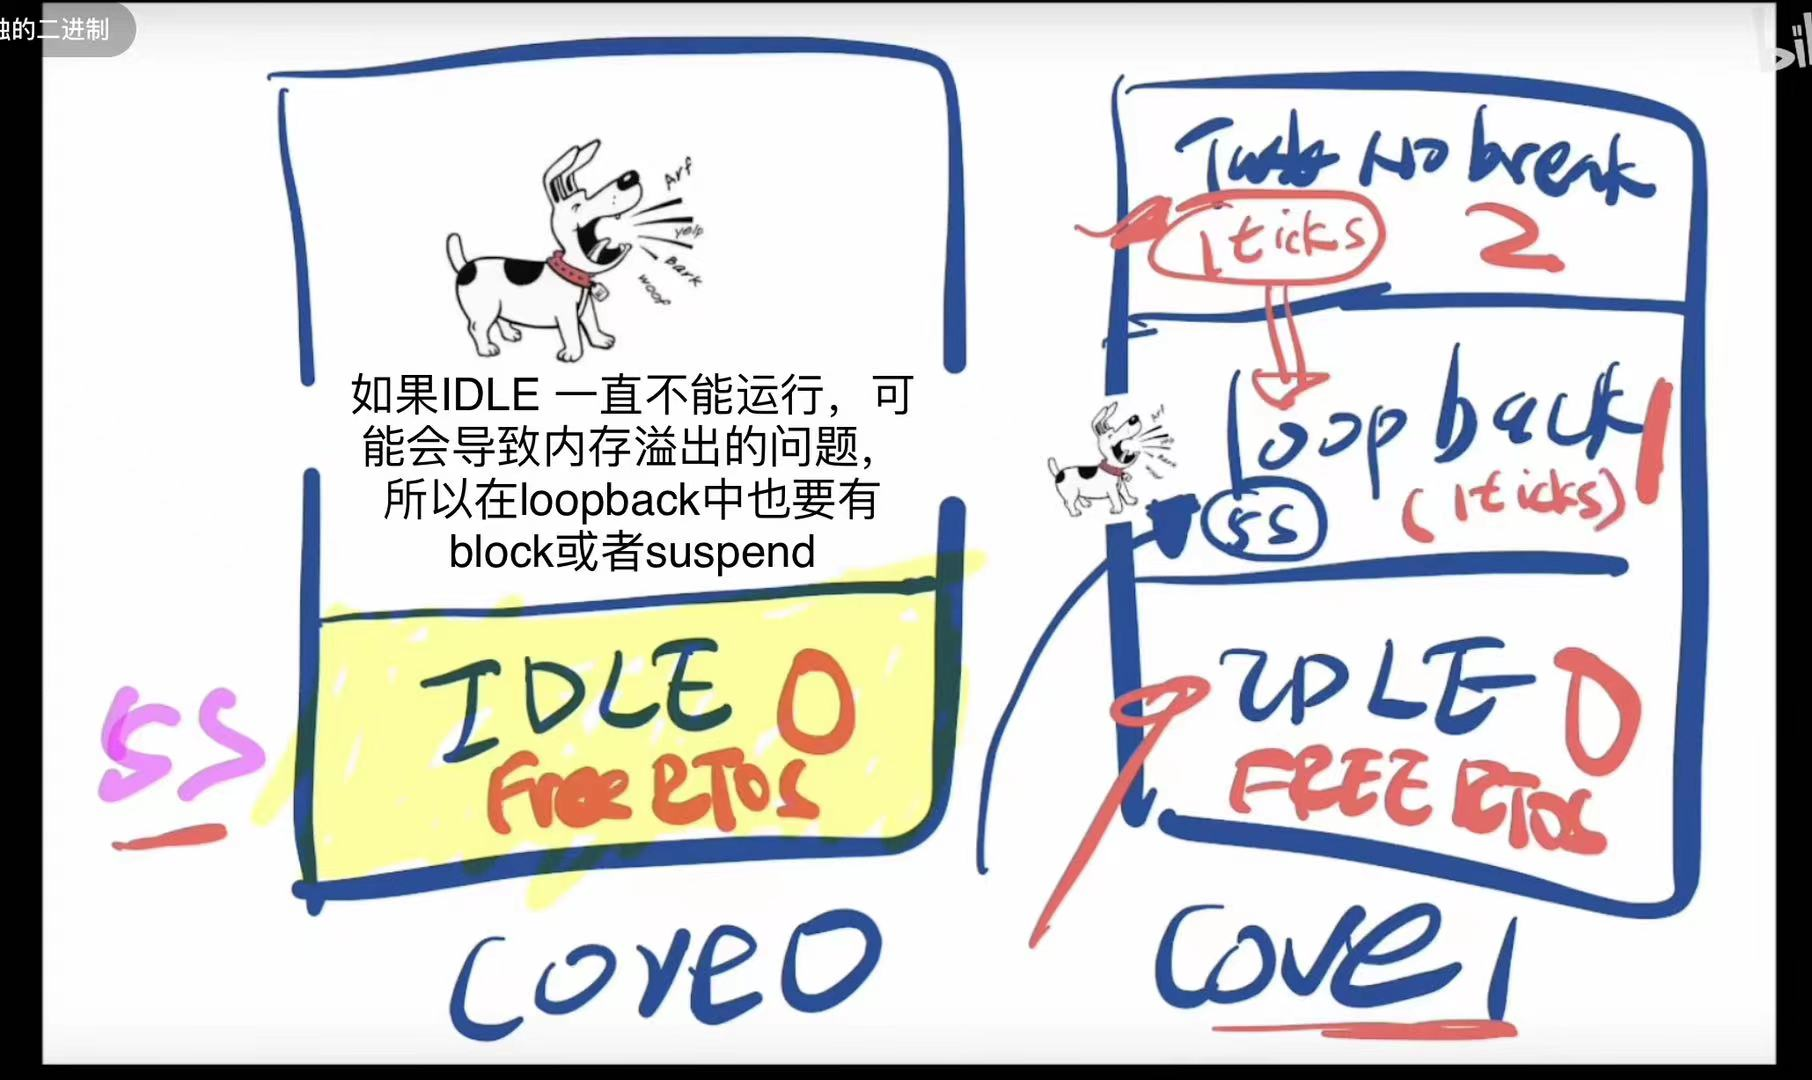 独的二进制
bili
Arf
yelp
Bark
woof
如果IDLE 一直不能运行，可
能会导致内存溢出的问题，
所以在loopback中也要有
block或者suspend
IDLE 0
Free RTOS
5S
Core 0
Task No break
1 ticks 2
Loop back 1
5S (1 ticks)
IDLE 0
FREE RTOS
Core 1